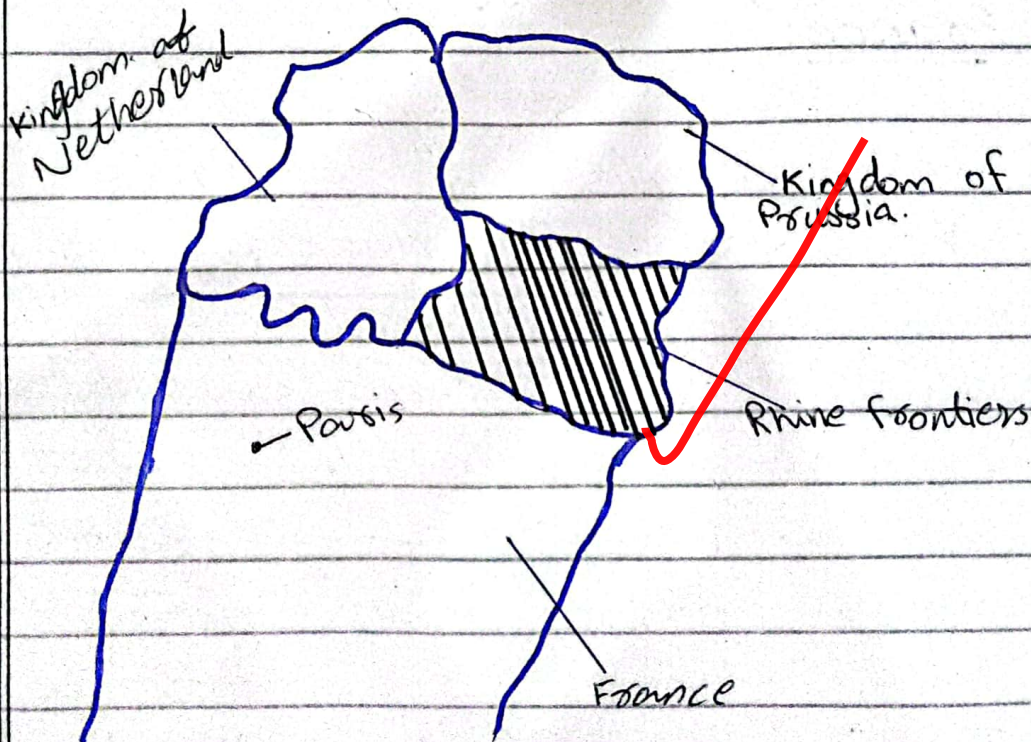 Kingdom of
Netherland
Kingdom of
Prussia.
Rhine frontiers
Paris
France